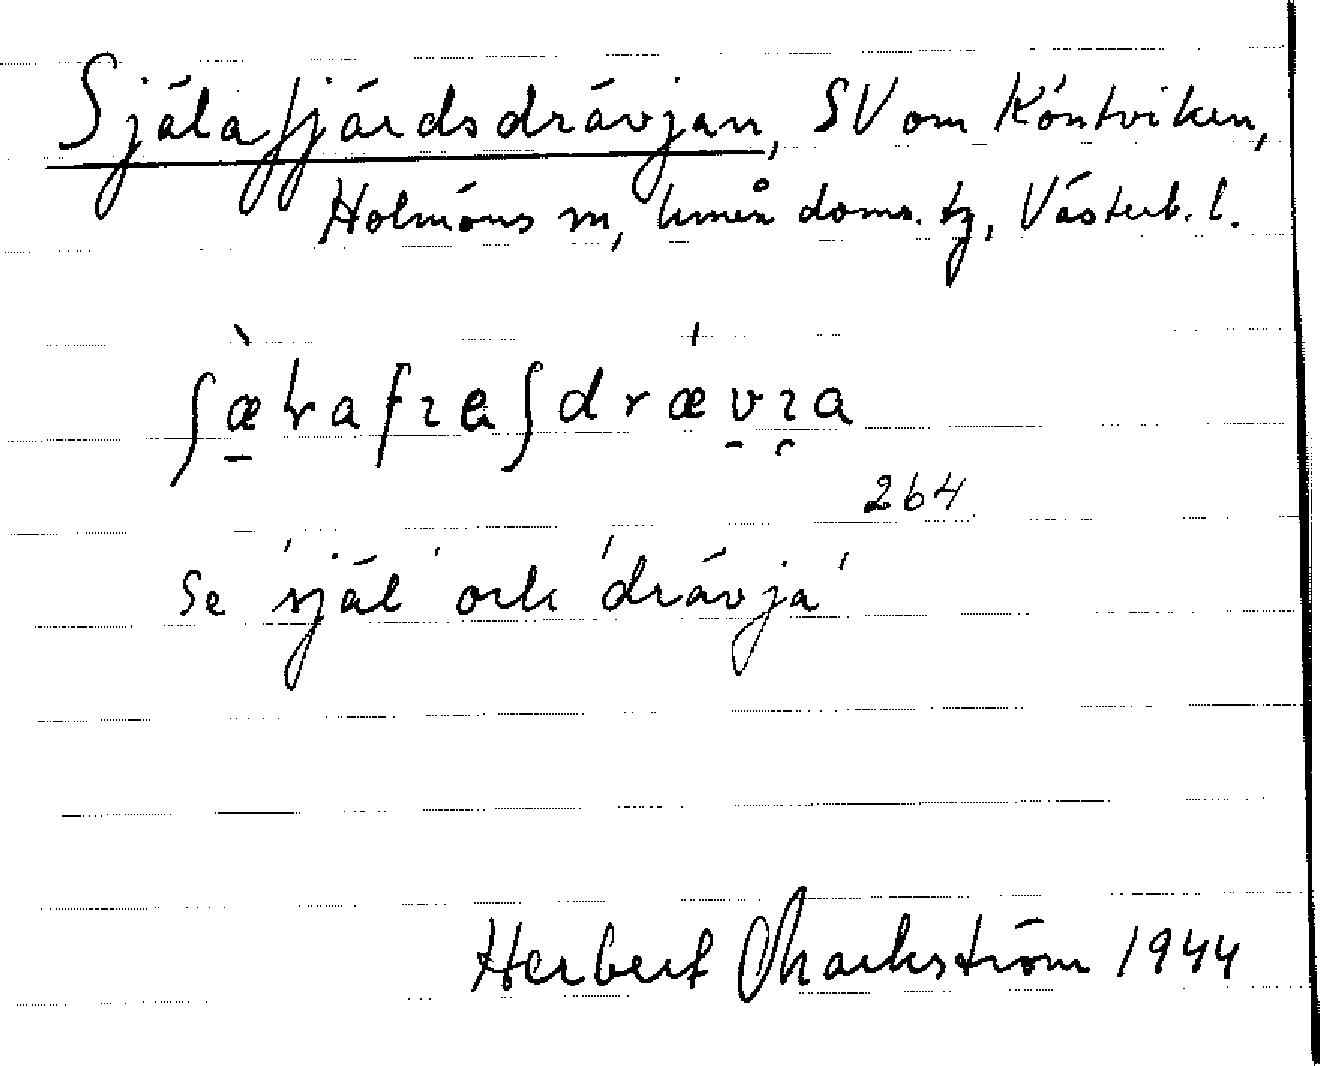 Själafjärdsdrävjan, SV om Köntviken,
Holmöns sn, Umeå doms. tg, Västerb. l.
ʃæ̀ɽafɪeʃdrǽvɪa
264
Se 'själ' och 'drävja'
Herbert Markström 1944